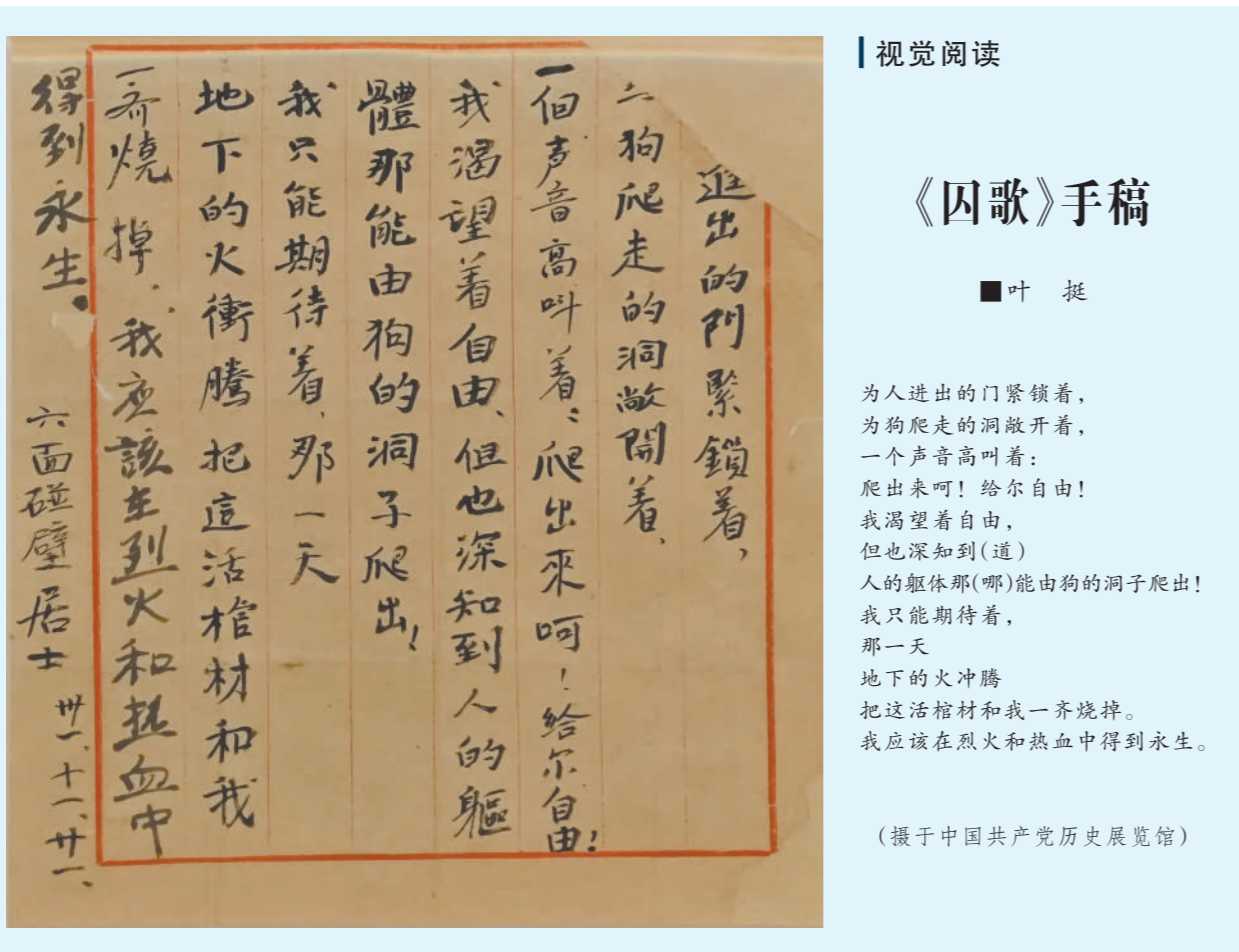 逛出的門緊鎖着，
狗爬走的洞敞開着、
一個声音高叫着：爬出來呵！給尔自由！
我渴望着自由、但也深知到人的軀
體那能由狗的洞子爬出！
我只能期待着、那一天
地下的火衝騰把這活棺材和我
一齊燒掉、我应該在烈火和热血中
得到永生。
六面碰壁居士
卅一、十一、廿一、
视觉阅读
《囚歌》手稿
■叶 挺
为人进出的门紧锁着，
为狗爬走的洞敞开着，
一个声音高叫着：
爬出来呵！给尔自由！
我渴望着自由，
但也深知到(道)
人的躯体那(哪)能由狗的洞子爬出！
我只能期待着，
那一天
地下的火冲腾
把这活棺材和我一齐烧掉。
我应该在烈火和热血中得到永生。
(摄于中国共产党历史展览馆)